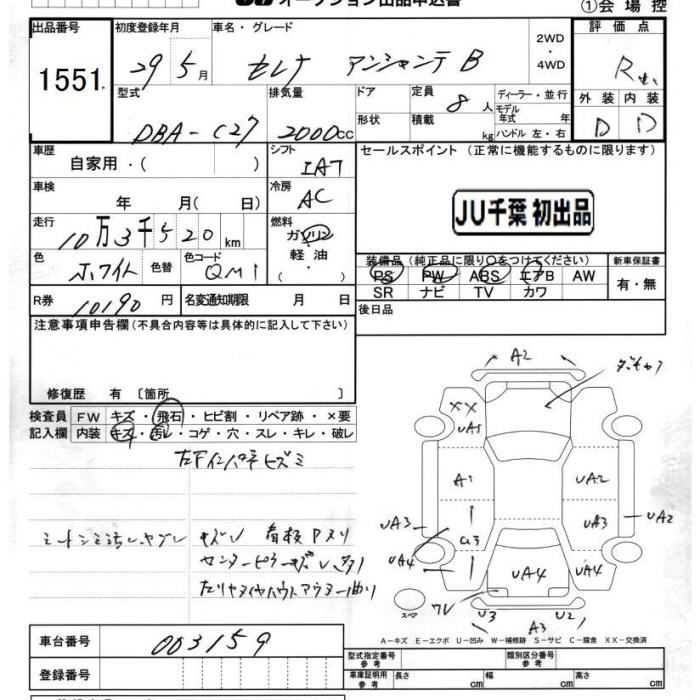 オークション出品申込書
①会場控
出品番号 初度登録年月 車名・グレード 2WD・4WD 評価点
1551 29 5月 セレナ アンシャンテ B R
型式 排気量 ドア 定員 8人 ディーラー・並行 外装 内装
形状 積載 kg モデル年式 年 ハンドル 左・右
DBA-C27 2000cc D D
車歴 シフト セールスポイント (正常に機能するものに限ります)
自家用・( ) IA7
車検 冷房
年 月( 日) AC JU千葉 初出品
走行 10万3千520km 燃料 ガソリン・軽油・( )
色 色替 色コード 装備品 (純正品に限り○をつけてください) 新車保証書
ホワイト QM1 PS PW ABS エアB AW 有・無
SR ナビ TV カワ
R券 10190円 名変通知期限 月 日 後日品
注意事項申告欄 (不具合内容等は具体的に記入して下さい)
修復歴 有 〔箇所 〕
検査員 FW キズ・飛石・ヒビ割・リペア跡・×要
記入欄 内装 キズ・汚レ・コゲ・穴・スレ・キレ・破レ
A2
XX
UA5
A1 UA2
UA3 U3 UA3 UA2
UA4 UA4 UA4
スペア ワレ U3 A3 U2
A-キズ E-エクボ U-凹み W-補修跡 S-サビ C-腐食 XX-交換済
車台番号 003159
登録番号
型式指定番号 参考 類別区分番号 参考
車庫証明用 参考 長さ cm 幅 cm 高さ cm